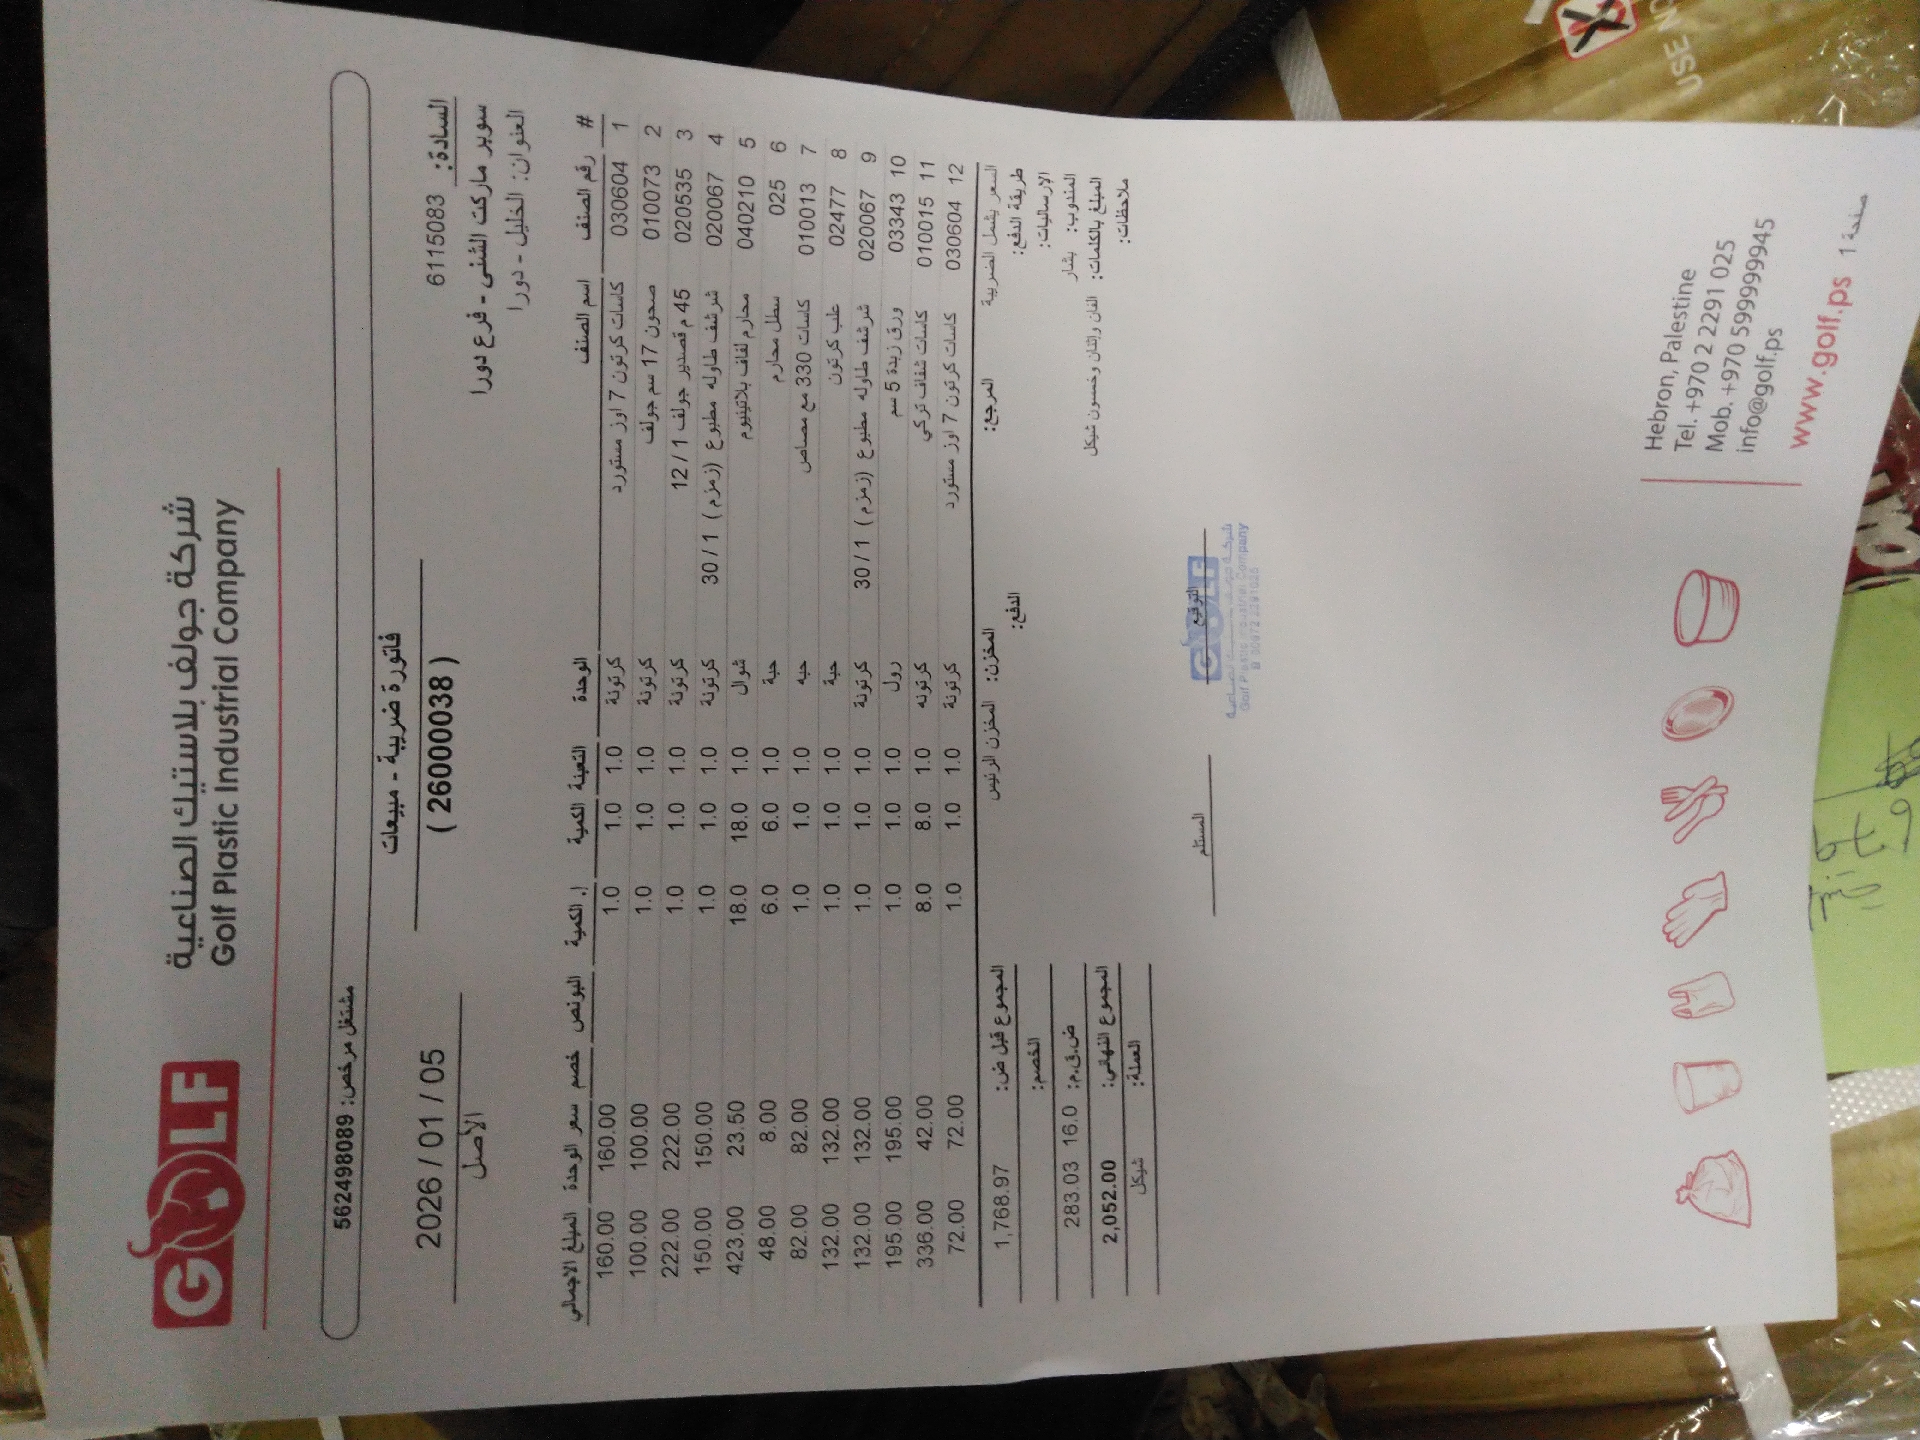 GOLF
شركة جولف بلاستيك الصناعية
Golf Plastic Industrial Company
مشتغل مرخص: 562498089
فاتورة ضريبية - مبيعات
( 26000038 )
2026 / 01 / 05
الأصل
السادة: 6115083
سوبر ماركت الشنى - فرع دورا
العنوان: الخليل - دورا
# رقم الصنف اسم الصنف الوحدة التعبئة الكمية إ. الكمية البونص خصم سعر الوحدة المبلغ الاجمالي
1 030604 كاسات كرتون 7 اوز مستورد كرتونة 1.0 1.0 1.0 160.00 160.00
2 010073 صحون 17 سم جولف كرتونة 1.0 1.0 1.0 100.00 100.00
3 020535 45 م قصدير جولف 1 / 12 كرتونة 1.0 1.0 1.0 222.00 222.00
4 020067 شرشف طاوله مطبوع (زمزم ) 1 / 30 كرتونة 1.0 1.0 1.0 150.00 150.00
5 040210 محارم لفاف بلاتينيوم شوال 1.0 18.0 18.0 23.50 423.00
6 025 سطل محارم حبة 1.0 6.0 6.0 8.00 48.00
7 010013 كاسات 330 مع مصاص حبه 1.0 1.0 1.0 82.00 82.00
8 02477 علب كرتون حبة 1.0 1.0 1.0 132.00 132.00
9 020067 شرشف طاوله مطبوع (زمزم ) 1 / 30 كرتونة 1.0 1.0 1.0 132.00 132.00
10 03343 ورق زبدة 5 سم رول 1.0 1.0 1.0 195.00 195.00
11 010015 كاسات شفاف تركي كرتونه 1.0 8.0 8.0 42.00 336.00
12 030604 كاسات كرتون 7 اوز مستورد كرتونة 1.0 1.0 1.0 72.00 72.00
السعر يشمل الضريبة المرجع: المخزن: المخزن الرئيس المجموع قبل ض: 1,768.97
طريقة الدفع: الدفع: الخصم:
الإرساليات: ض.ق.م: 16.0 283.03
المندوب: بشار المجموع النهائي: 2,052.00
المبلغ بالكلمات: الفان وإثنان وخمسون شيكل العملة: شيكل
ملاحظات:
التوقيع المستلم
GOLF
شركة جولف بلاستيك الصناعية
Golf Plastic Industrial Company
Hebron, Palestine
Tel. +970 2 2291 025
Mob. +970 599999945
info@golf.ps
www.golf.ps
صفحة 1
USE NO